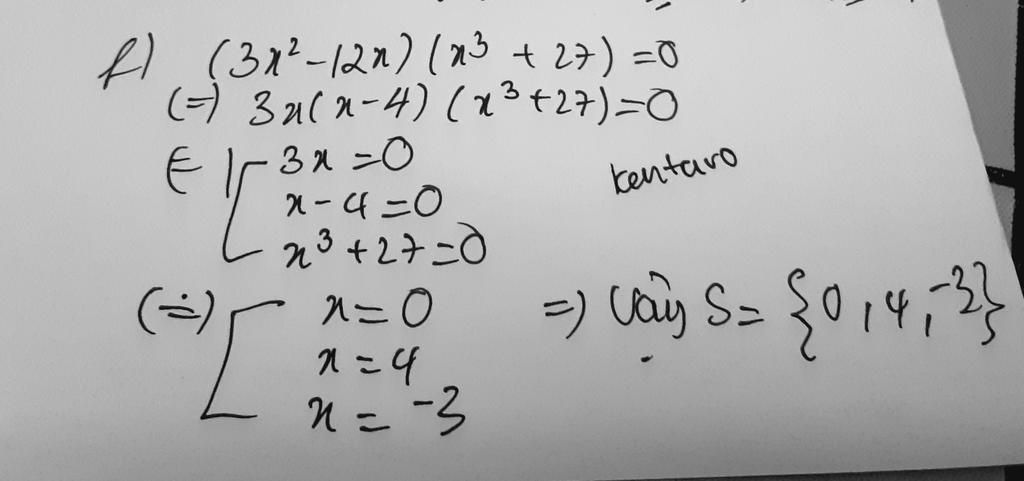 f) (3x²-12x)(x³ + 27) = 0
(=) 3x(x-4)(x³+27)=0
3x = 0
x - 4 = 0
x³ + 27 = 0
kentaro
(=) x = 0
x = 4
x = -3
=) Vậy S = {0, 4, -3}